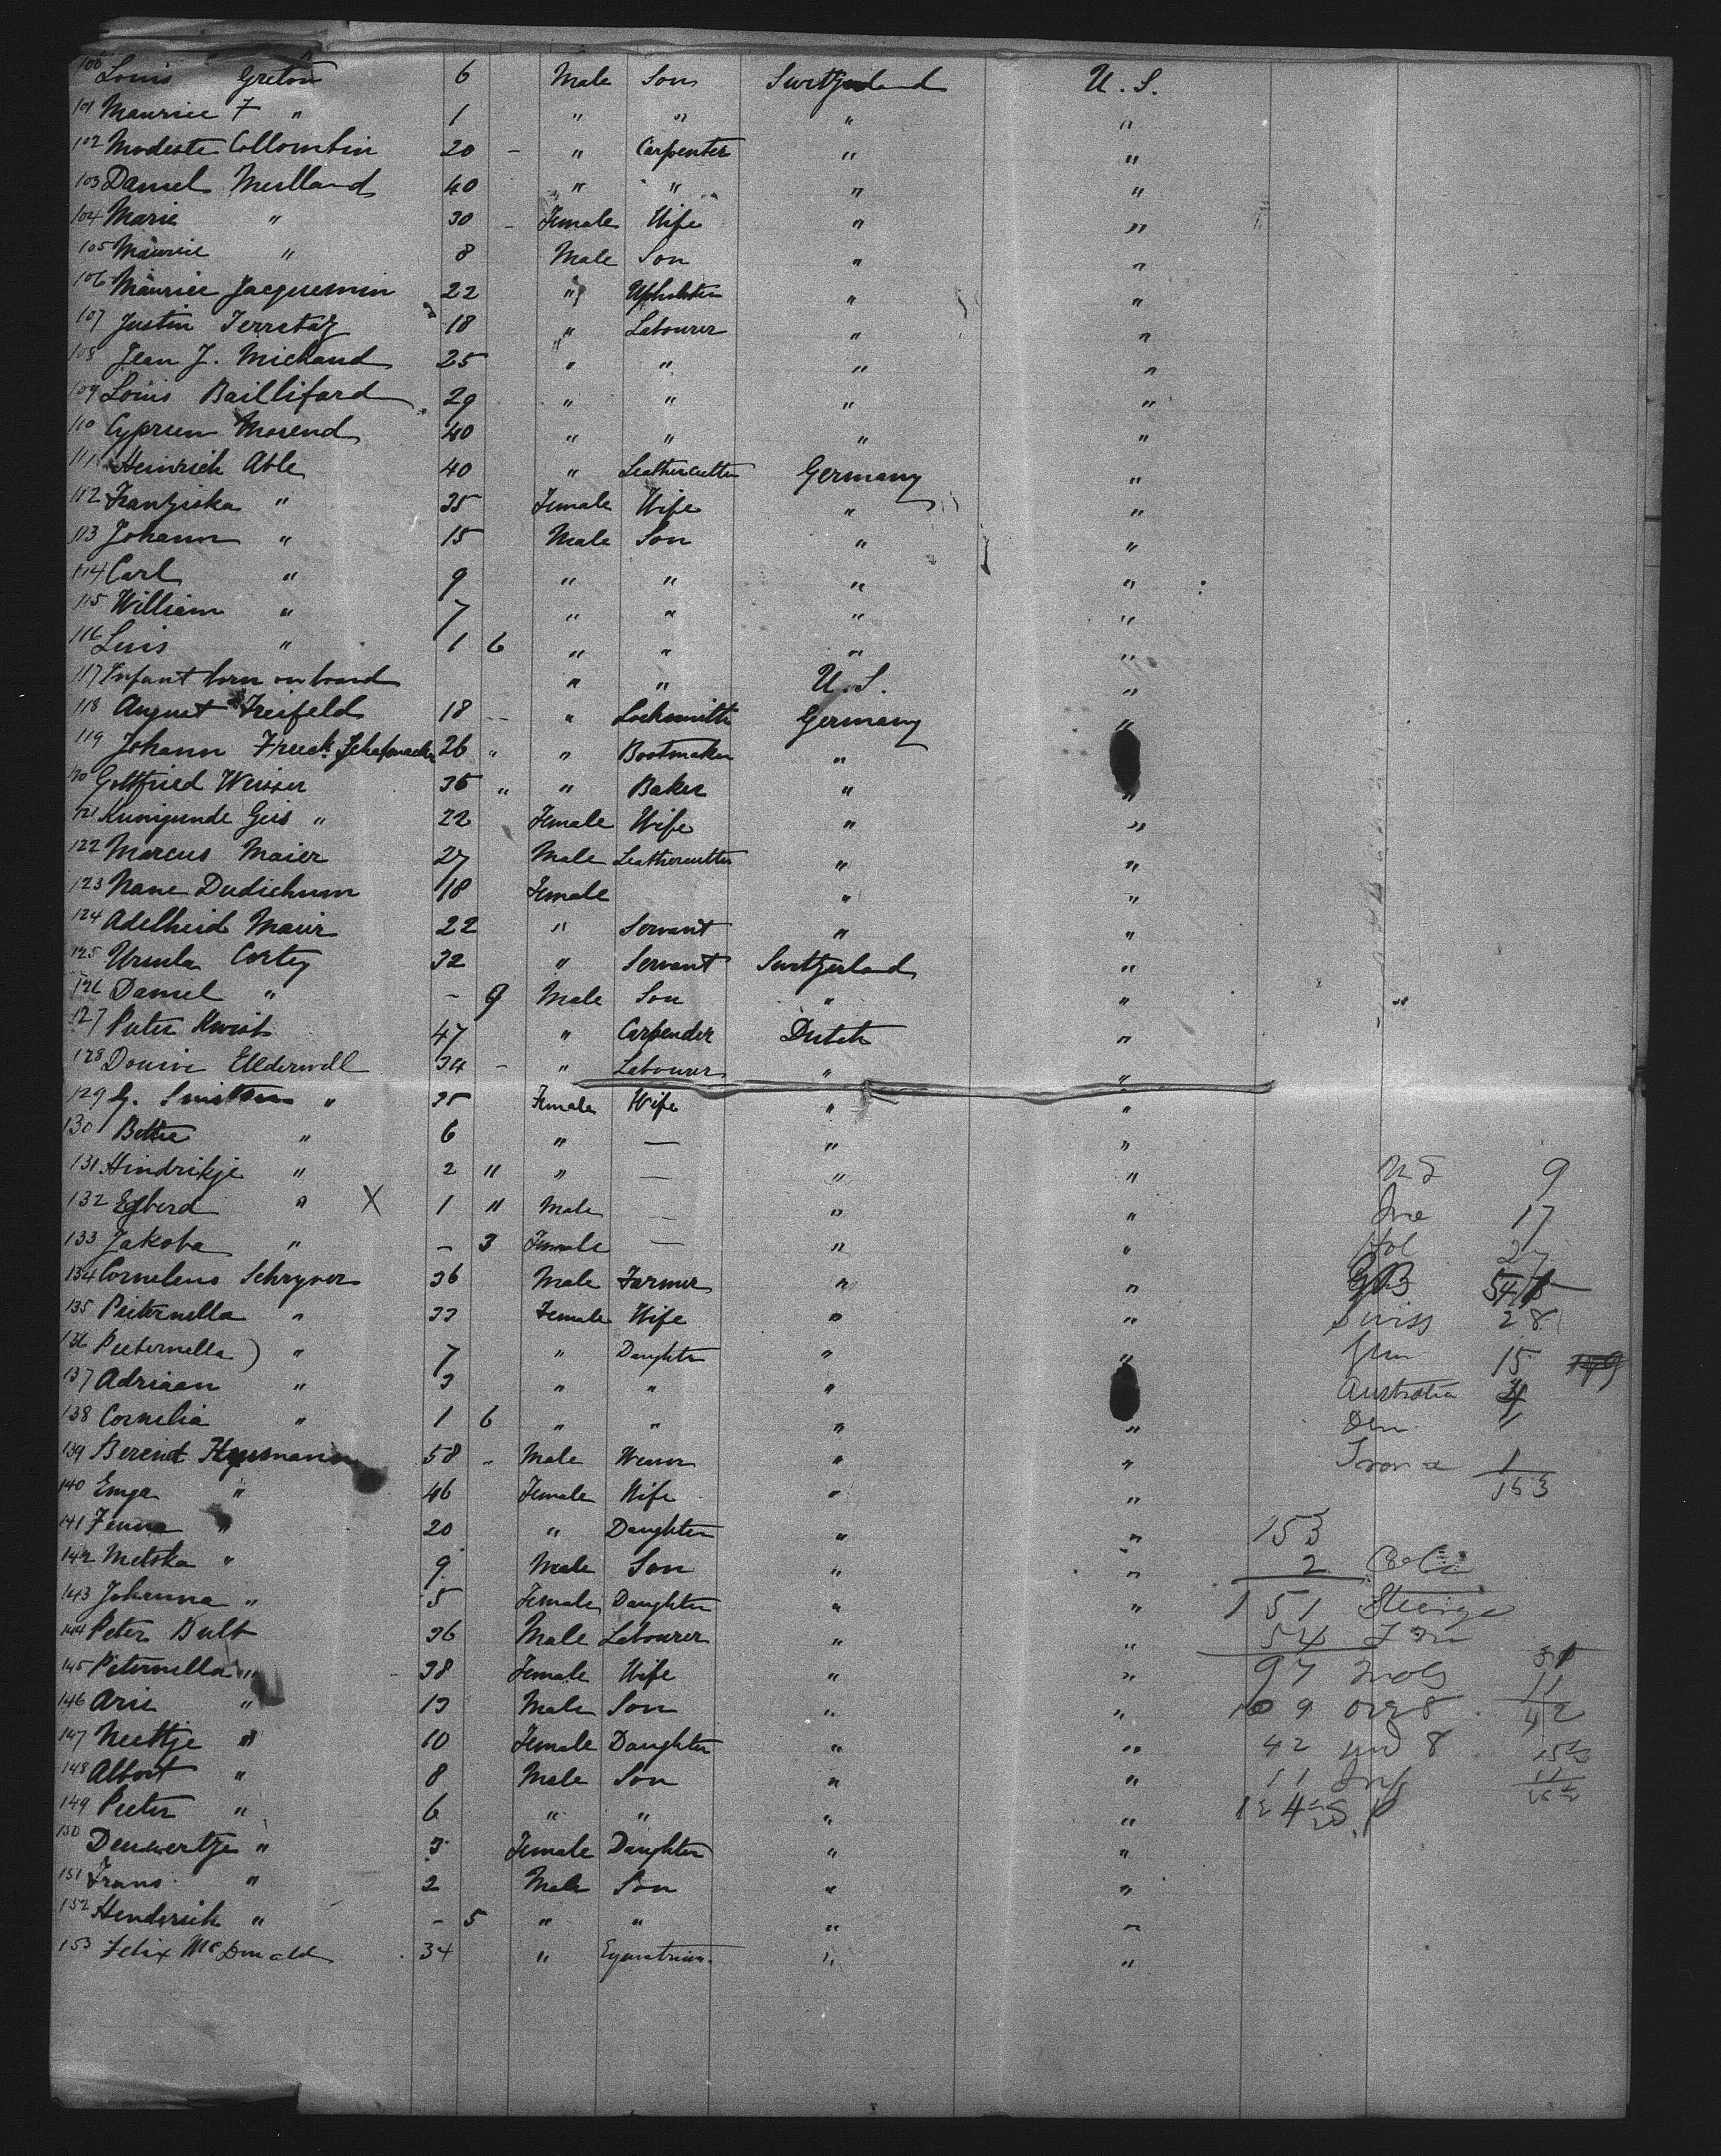 100 Louis Greton 6 Male Son Switzerland U. S.
101 Maurice F " 1 " " " "
102 Modeste Collombin 20 - " Carpenter " "
103 Daniel Meilland 40 " " " "
104 Marie " 30 - Female Wife " "
105 Maurice " 8 Male Son " "
106 Maurice Jacquemin 22 " Upholster " "
107 Justin Terretaz 18 " Labourer " "
108 Jean J. Michaud 25 " " " "
109 Louis Baillifard 29 " " " "
110 Cyprien Morend 40 " " " "
111 Heinrich Able 40 " Leathercutter Germany "
112 Franziska " 35 Female Wife " "
113 Johann " 15 Male Son " "
114 Carl " 9 " " " "
115 William " 7 " " " "
116 Luis " 1 6 " " " "
117 Infant born on board " " U. S. "
118 August Freifeld 18 -- " Locksmith Germany "
119 Johann Frieck. 26 " " Bootmaker "
120 Gottfried Weisser 35 " " Baker " "
121 Kunigunde Geis " 22 Female Wife " "
122 Marcus Maier 27 Male Leathercutter " "
123 Nane Dudichum 18 Female " "
124 Adelheid Maier 22 " Servant " "
125 Ursula Cortey 32 " Servant Switzerland "
126 Daniel " - 9 Male Son " " "
127 Peter Kwist 47 " Carpender Dutch "
128 Douwe Elderwell 34 - " Labourer " "
129 G. " 35 Female Wife " "
130 Bettie " 6 " — " "
131 Hindrikje " 2 " " — " "
132 Egberd " X 1 " Male — " "
133 Jakoba " - 3 Female — " "
134 Cornelius Schryver 36 Male Farmer " "
135 Pieternella " 33 Female Wife " "
136 Pieternella ) " 7 " Daughter " "
137 Adriaan " 3 " " "
138 Cornelia " 1 6 " " " "
139 Berend 58 " Male Weaver " "
140 Emga " 46 Female Wife " "
141 Fenna " 20 " Daughter " "
142 Metska " 9 Male Son " "
143 Johanna " 5 Female Daughter " "
144 Peter Bult 36 Male Labourer " "
145 Peternella " 38 Female Wife " "
146 Arie " 13 Male Son " "
147 Neeltje " 10 Female Daughter " "
148 Albert " 8 Male Son " "
149 Pieter " 6 " " " "
150 " 3 Female Daughter " "
151 Frans " 2 Male Son " "
152 Henderick " - 5 " " " "
153 Felix McDonald 34 " Equestrian " "
U S 9
Ire 17
Hol 27
GB 54
Swiss 28
Ger 15
Australia 4
Den 1
1
153
153
2
151 Steerage
54
97
109 over 8
42 und 8
11 Inf
31
11
42